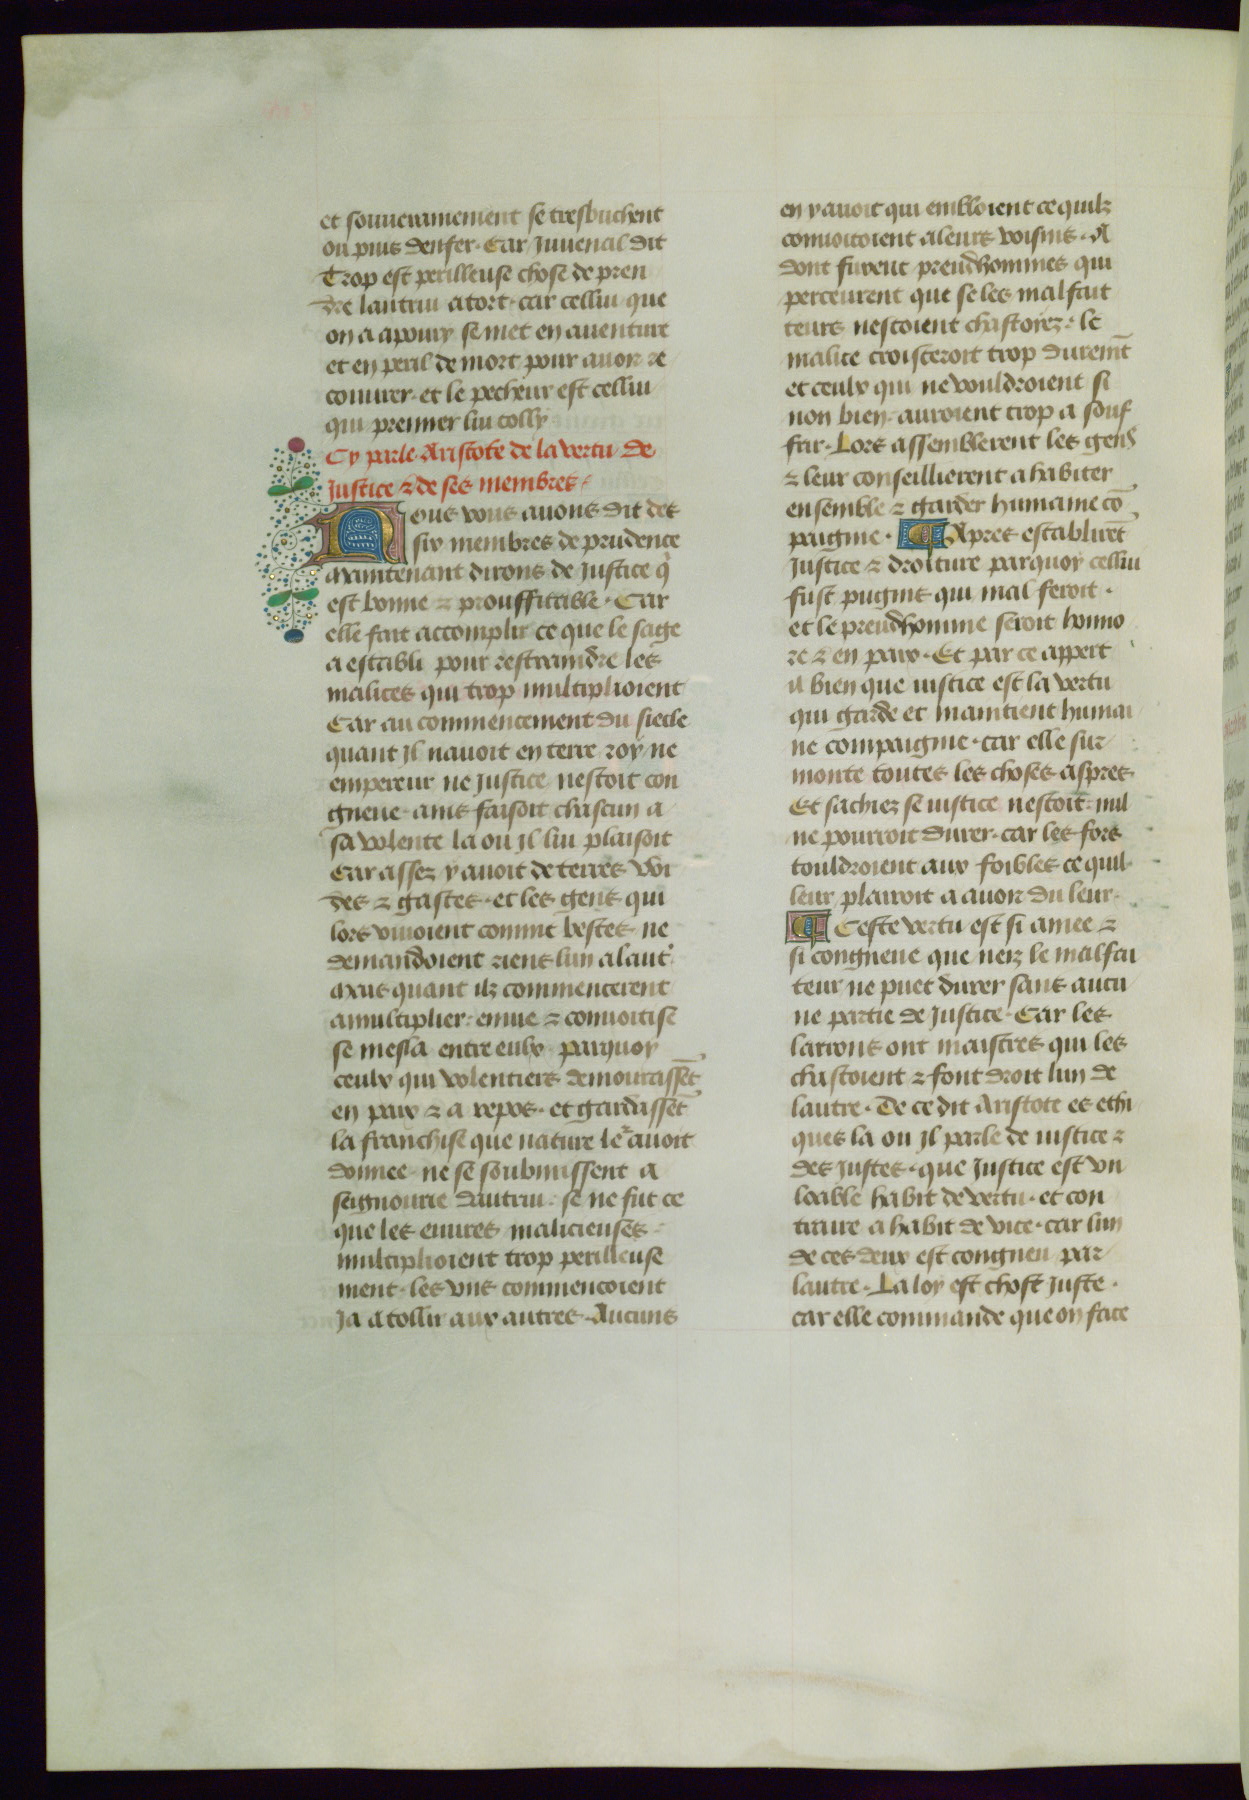 et souuerainement se tresbuchent
ou puis denfer. Car Juuenal dit
Trop est perilleuse chose de pren
dre lautrui a tort. car cellui que
on a apoury se met en auenture
et en peril de mort pour auoir re
couurer. et le pecheur est cellui
qui premier lui tolly
Cy parle Aristote de la vertu de
Justice ⁊ de ses membres.
Nous vous auons dit des
six membres de prudence
maintenant dirons de Justice q̄
est bonne ⁊ prouffitable. Car
elle fait accomplir ce que le sage
a establi pour restraindre les
malices qui trop multiplioient
Car au commencement du siecle
quant Jl nauoit en terre roy ne
empereur ne Justice nestoit con
gneue. ains faisoit chascun a
sa volente la ou Jl lui plaisoit
Car assez y auoit de terres voi
des ⁊ gastes. et les gens qui
lors viuoient comme bestes ne
demandoient riens lun a laut᾿
mais quant ilz commencerent
a multiplier. enuie ⁊ conuoitise
se mesla entre eulx parquoy
ceulx qui volentiers demourassēt
en paix ⁊ a repos. et gardassēt
la franchise que nature leʳ auoit
donnee ne se soubmissent a
seignourie dautrui. se ne fut ce
que les euures malicieuses
multiplioient trop perilleuse
ment. les vns commencoient
Ja a tollir aux autres. Aucuns
en y auoit qui embloient ce quilz
conuoitoient a leurs voisins. A
dont furent preudhommes qui
perceurent que se les malfait
teurs nestoient chastoiez. le
malice croisteroit trop duremēt
et ceulx qui ne vouldroient si
non bien. auroient trop a souf
frir. Lors assemblerent les gens
⁊ leur conseillierent a habiter
ensemble ⁊ garder humaine cō
paignie. ¶ Apres establirēt
Justice ⁊ droiture parquoy cellui
fust pugnis qui mal feroit.
et le preudhomme seroit honno
re ⁊ en paix. Et par ce appert
il bien que iustice est la vertu
qui garde et maintient humai
ne compaignie. car elle sur
monte toutes les choses aspres
Et sachiez se iustice nestoit. nul
ne pourroit durer. car les fors
touldroient aux foibles ce quil
leur plairoit a auoir du leur.
¶ Ceste vertu est si amee ⁊
si congneue que neiz le malfai
teur ne puet durer sans aucu
ne partie de Justice. Car les
larrons ont maistres qui les
chastoient ⁊ font droit lun de
lautre. De ce dit Aristote es ethi
ques la ou Jl parle de iustice ⁊
des Justes. que Justice est vn
loable habit de vertu. et con
traire a habit de vice. car lun
de ces deux est congneu par
lautre. La loy est chose Juste.
car elle commande que on face